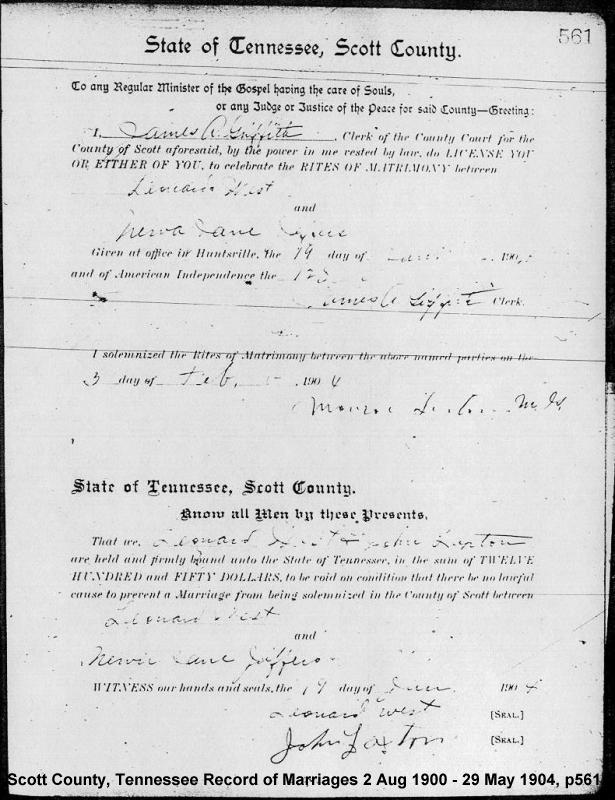 561
State of Tennessee, Scott County.
To any Regular Minister of the Gospel having the care of Souls,
or any Judge or Justice of the Peace for said County—Greeting:
I, James A Griffith, Clerk of the County Court for the
County of Scott aforesaid, by the power in me vested by law, do LICENSE YOU
OR EITHER OF YOU, to celebrate the RITES OF MATRIMONY between
West
and
Jane
Given at office in Huntsville, the 19 day of 190
and of American Independence the 12
James A Clerk.
I solemnized the Rites of Matrimony between the above named parties on the
3 day of Feb. 1904
Monroe
State of Tennessee, Scott County.
Know all Men by these Presents,
That we, Leonard West & John Laxton
are held and firmly bound unto the State of Tennessee, in the sum of TWELVE
HUNDRED and FIFTY DOLLARS, to be void on condition that there be no lawful
cause to prevent a Marriage from being solemnized in the County of Scott between
Leonard West
and
Jane Jeffers
WITNESS our hands and seals, the 19 day of 1904
Leonard West [SEAL.]
John Laxton [SEAL.]
Scott County, Tennessee Record of Marriages 2 Aug 1900 - 29 May 1904, p561